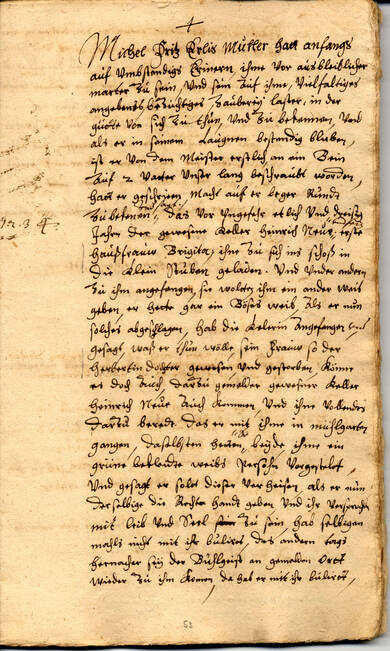 Michel Fritz Erlis Müller hatt anfangs
auf Umbstendigs Erinern, ihme vor ausbleiblicher
marter zu sein, Und sein auf ihme, Vielfaltiges
angebens bezüchtiges Zauberey laster, in der
güette von sich zu thun, Und zu bekennen, Und
als er in seinem Laugnen bestendig blieben,
ist er Von dem Meister erstlich an ein Bein
Auf 2 Vatter Unser lang beschraubt worden,
hatt er geschrien, Macht auf er leger Rundt
zubekennen, das vor Ungefehr etlich Und dreisig
1634
Jahr der gewesene Keller Heinrich Neüs erste
Haußfrauw Brigita, ihne zu sich ins schoß in
die Klein Stüben geladen. Und Under andern
zu ihm angefangen, sie wolte ihm ein ander weib
geben, er hette gar ein Böses weib, Als er nun
solches abgeschlagen, hab die Kelerin Angefangen Und
gesagt, waß er thun wölle, sein Frauw so der
dochter gewesen Und gestorben, Könne
es doch Auch, darzu gemelter gewesener Keller
Heinrich Neüe Auch Kommen, Und ihne Vollendts
darzu beredt das er mit ihme in mühlgarten
gangen, daselbsten hetten, beyde ihme ein
grüne bekleidte weibs Persohn Vorgestelet,
Und gesagt er solet dieser Verheisen, als er nun
derselbige die Rechte handt geben Und ihr Versprochen
mit leib Und Seel zu sein, hab selbigen
mahls nicht mit ihr bulirt, des andern tags
hernacher sey der Bühlgeist an gemelden Ortt
wieder zu ihm Komen, da hab er mit ihr bulirt,
53